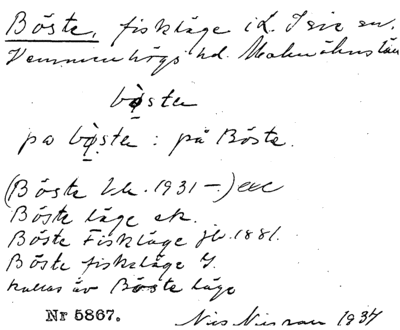 Böste, fiskläge i L. Isie sn.
Vemmenhögs hd. Malmöhus län
bø̀stɐ
pɑ bø̀stɐ : på Böste.
(Böste 1931 –)
Böste läge ek.
Böste Fiskläge jb. 1881.
Böste fiskeläge
kallas äv Böste läge
Nr 5867.
Nils Nilsson 1937